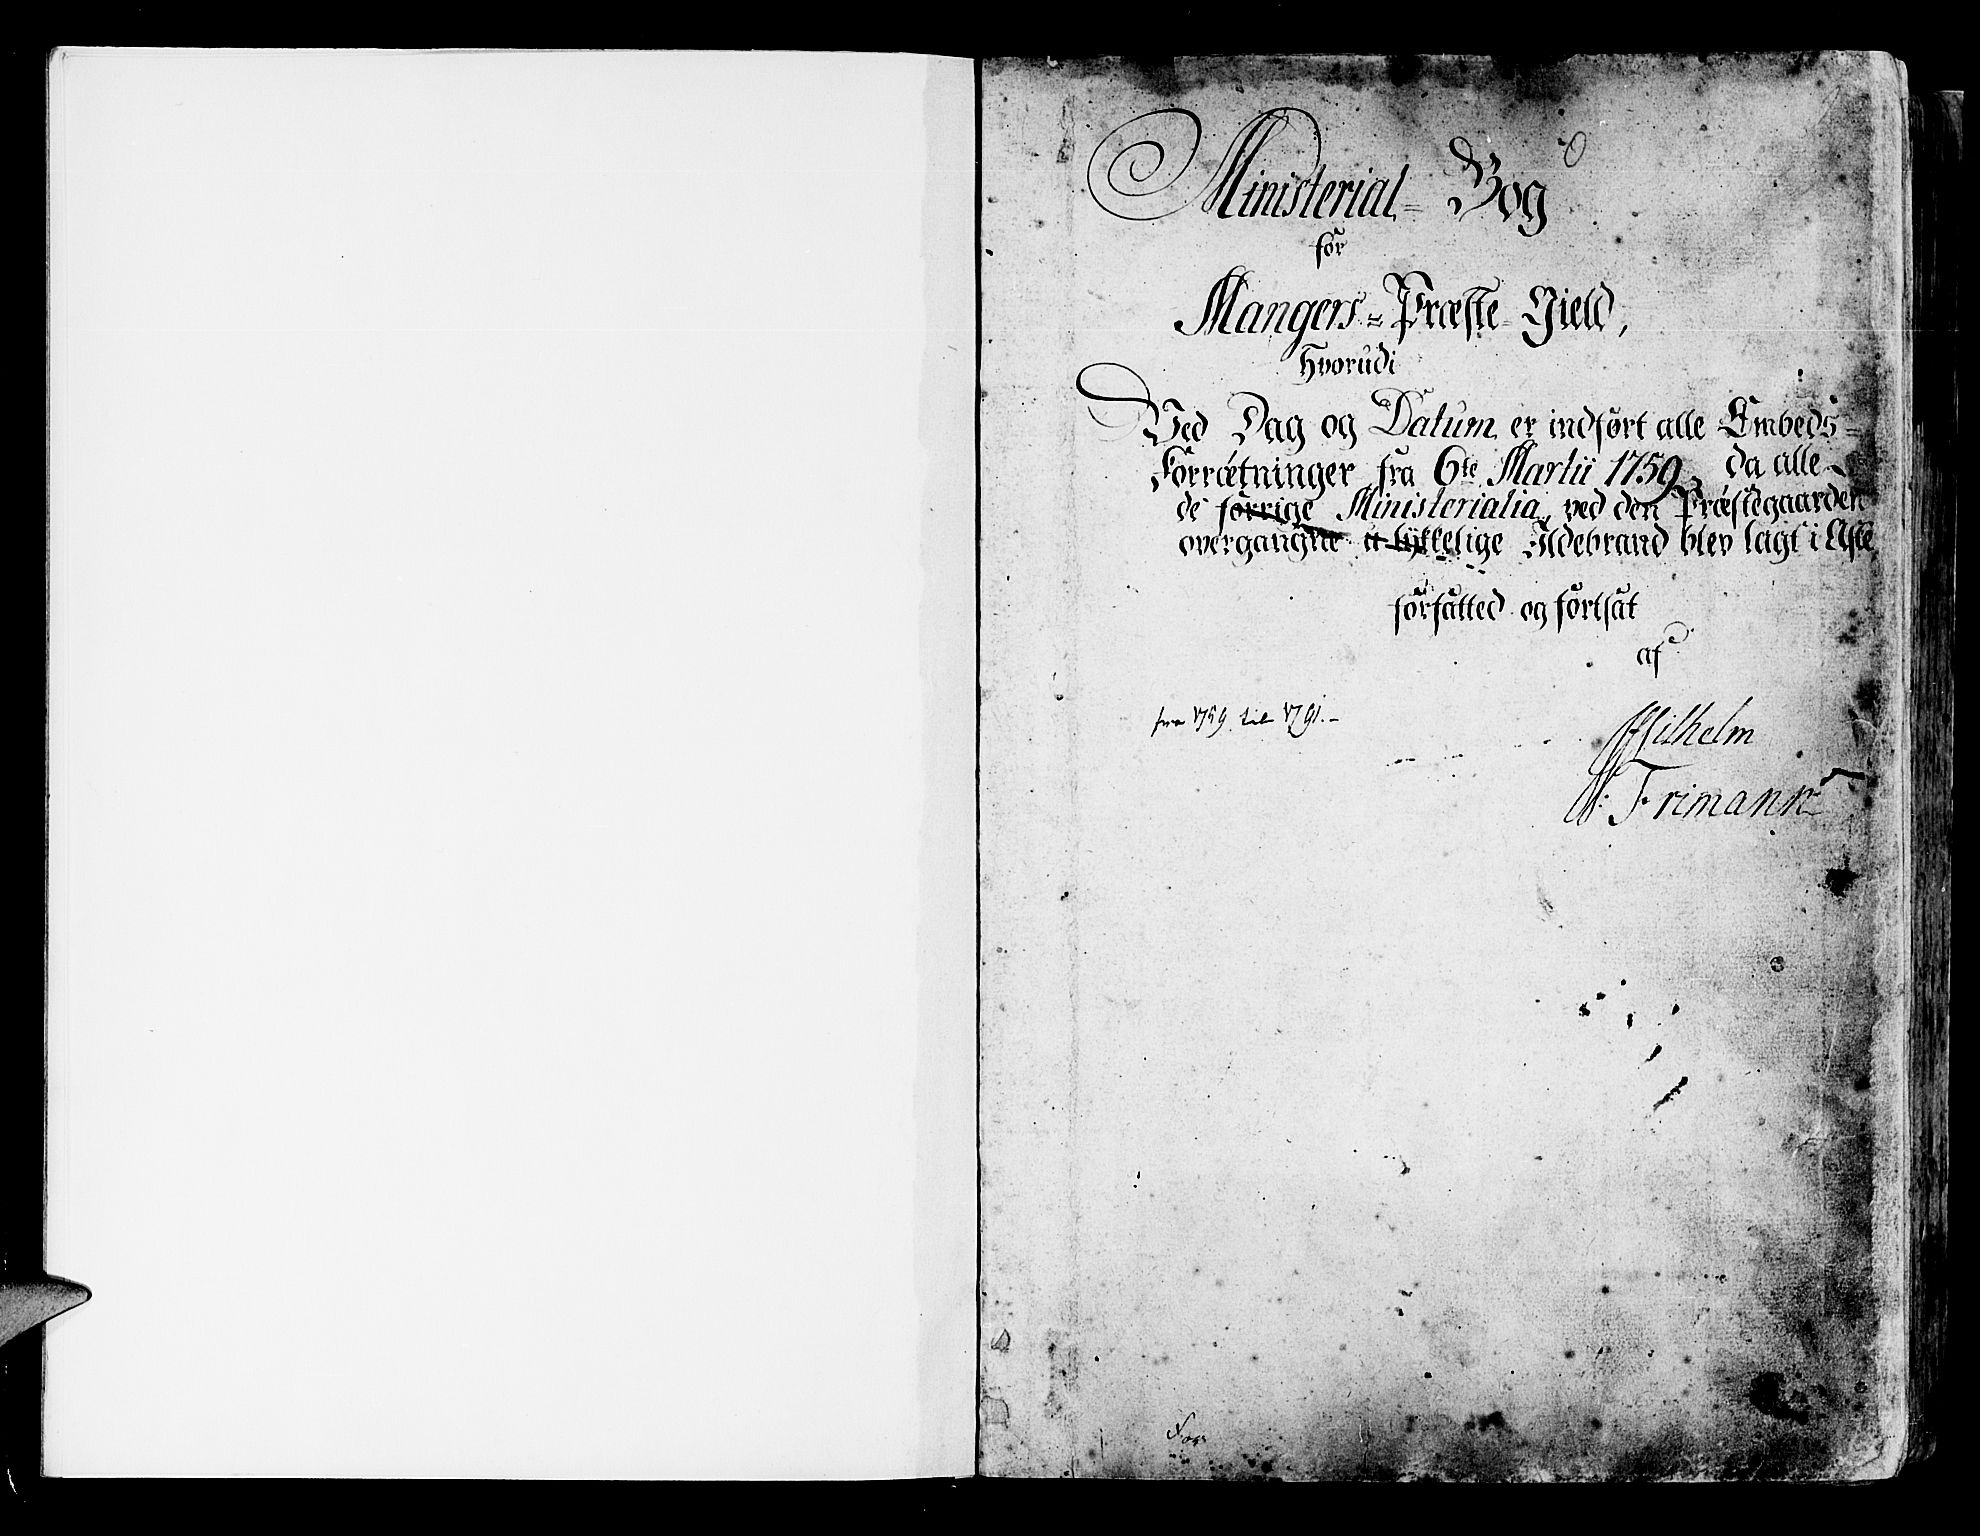 Ministerial= Bog
for
Mangers=Præste-Gield,
Hvorudi
Ved Dag og Datum er indført alle Embeds=
Forrætninger fra 6te Martii 1759, da alle
de forrige Ministerialia, ved den Præstegaarden
overgangne ulykkelige Ildebrand blev lagt i Aske
forfatted og fortsat
af
fra 1759 til 1791.-
Wilhelm
F: Frimann